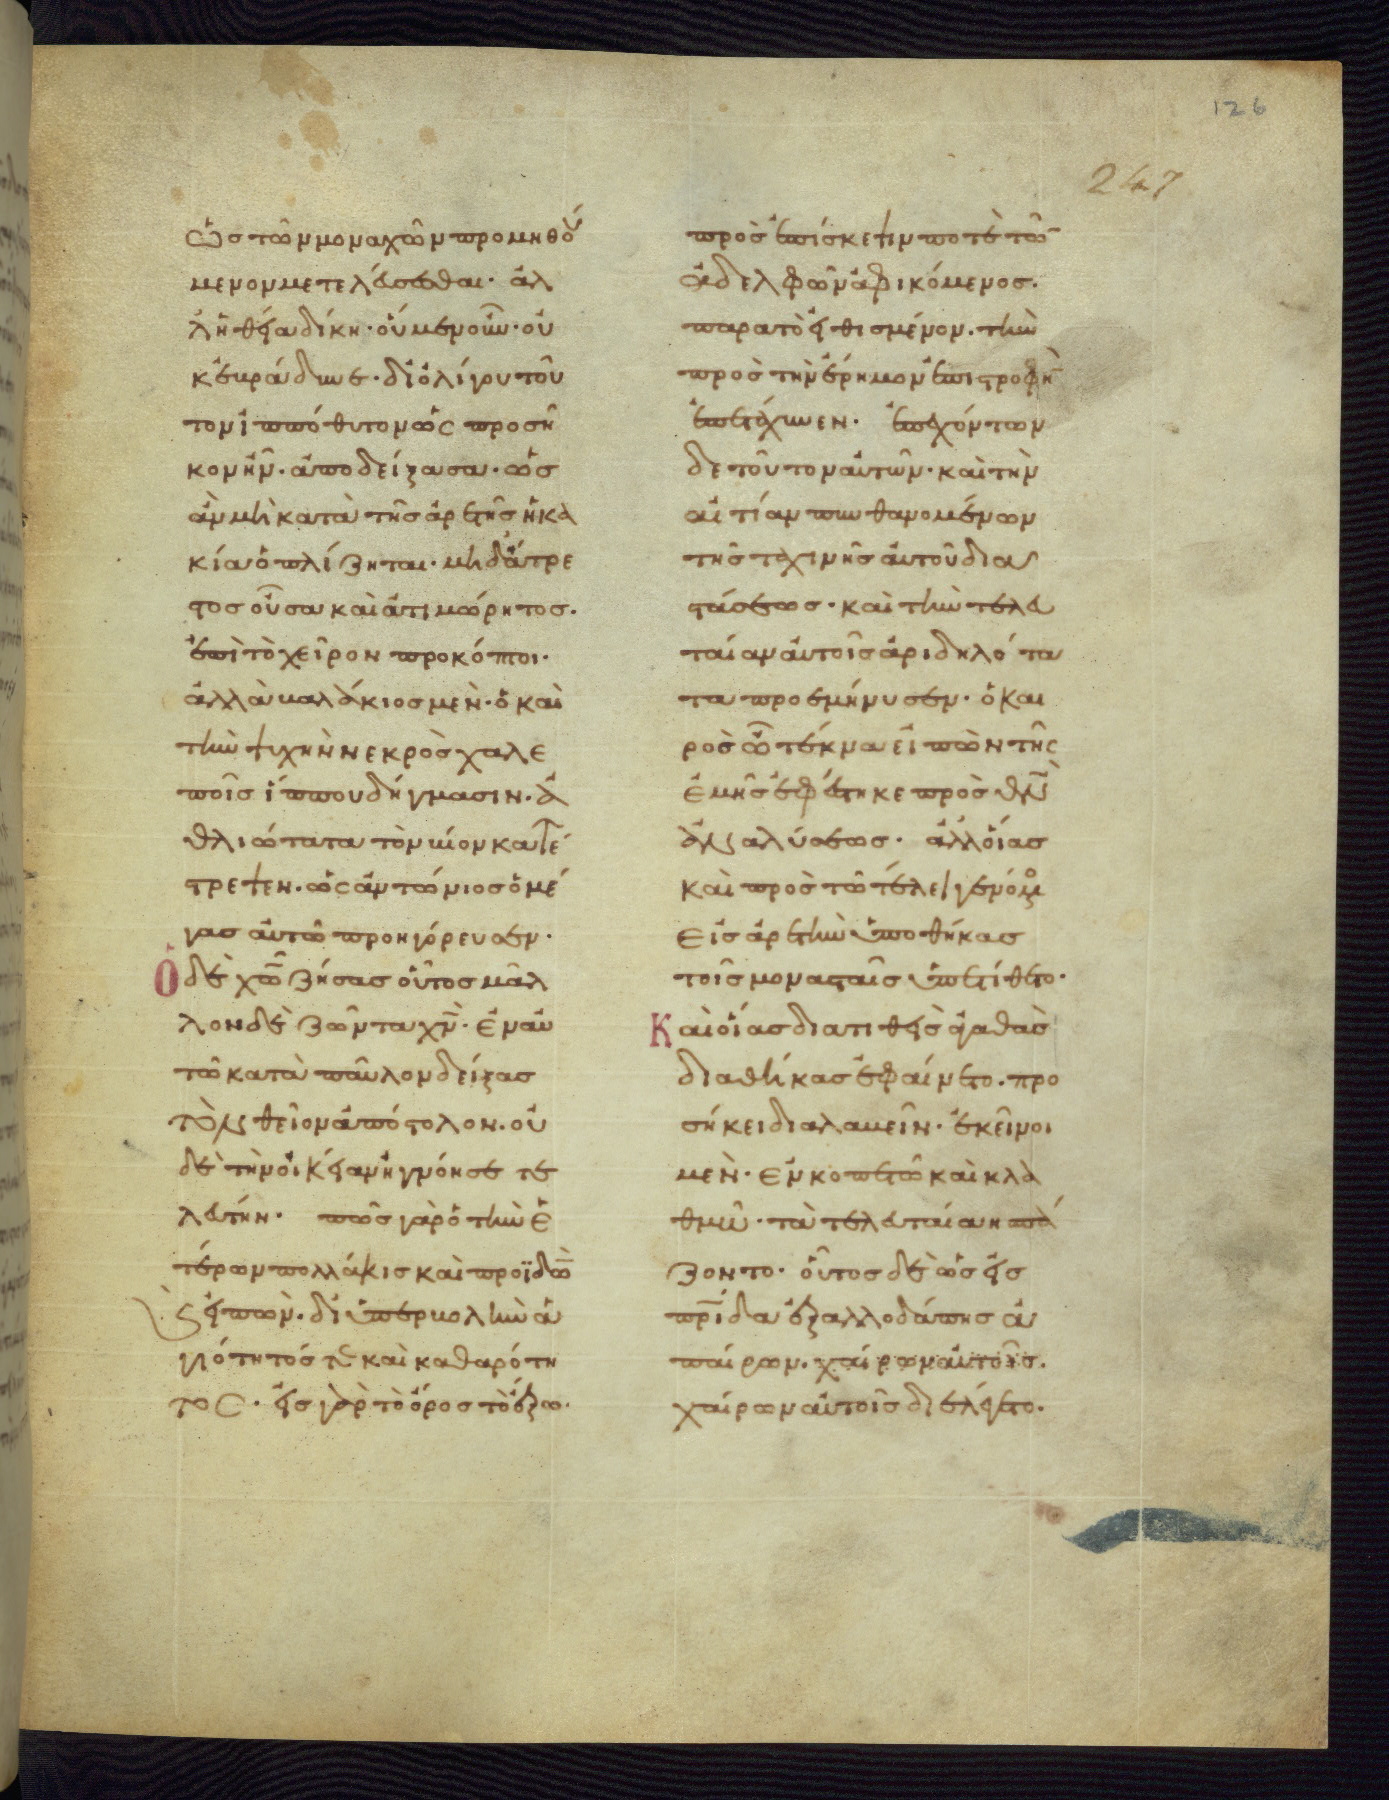 126
247
ὡς τῶν μοναχῶν προμηθού
μενον μετελεύσεσθαι· ἀλ
λ' ἡ θεία δίκη· οὐμενοῦν· οὐ
κ εἴα
δι' ὀλίγου τοῦ
τον ἱππόθυτον ὡς προσῆ
κον ἦν· ἀποδείξασα· ὡς
ἂν μὴ κατὰ τῆς ἀρετῆς ἡ κα
κία ὁπλίζηται· μὴ δ' ἄτρε
πτος οὖσα καὶ ἀτιμώρητος·
ἐπὶ τὸ χεῖρον προκόπτοι·
ἀλλὰ βαλάκιος μὲν· ὁ καὶ
τὴν ψυχὴν νεκρὸς χαλε
ποῖς ἵππου δήγμασιν· ἀ
θλιώτατα τὸν βίον κατέ
στρεψεν· ὡς ἀντώνιος ὁ μέ
γας αὐτῶ προηγόρευσεν·
Ὁ δὲ χῶ ζήσας οὗτος μᾶλ
λον δὲ ζῶντα χν· ἐν ἑαυ
τῶ κατὰ παῦλον δείξας
τὸν θεῖον ἀπόστολον· οὐ
δὲ τὴν οἰκείαν ἠγνόησε τε
λευτήν· πῶς γὰρ ὁ τὴν ἑ
τέρων πολλάκις καὶ προϊδὼν
καὶ εἰπών· δι' ὑπερβολὴν ἁ
γιότητός τε καὶ καθαρότη
τος· εἰς γὰρ τὸ ὄρος τὸ ἔξω·
πρὸς ἐπίσκεψιν ποτὲ τῶν
ἀδελφῶν ἀφικόμενος·
παρὰ τὸ εἰθισμένον· τὴν
πρὸς τὴν ἔρημον ἐπιστροφὴν
ἐπετάχυνεν· ἐπεχόντων
δὲ τοῦτον αὐτῶν· καὶ τὴν
αἰτίαν πυνθανομένων
τῆς ταχινῆς αὐτοῦ δια
στάσεως· καὶ τὴν τελευ
ταίαν αὐτοῖς ἀριδηλότα
τα προσεμήνυσεν· ὁ και
ρὸς ὦ τέκνα εἰπὼν τῆς
ἐμῆς ἐφέστηκε πρὸς θν
ἀναλύσεως· ἀλλ' οἵας
καὶ πρὸς τῶ τέλει γενόμενος
εἰς ἀρετὴν ὑποθήκας
τοῖς μονασταῖς ὑπετίθετο·
Καὶ οἵας διατιθεὶς ἀγαθὰς
διαθήκας ἐφαίνετο· προ
σήκει διαλαβεῖν· ἐκεῖνοι
μὲν· ἐν κοπετῶ καὶ κλαυ
θμῶ· τὰ τελευταῖα ἠσπά
ζοντο· οὗτος δὲ ὡς εἰς
πρίδα ἐξ ἀλλοδαπῆς ἀ
παίρων· χαίρων αὐτοῖς·
χαίρων αὐτοῖς διελέγετο·